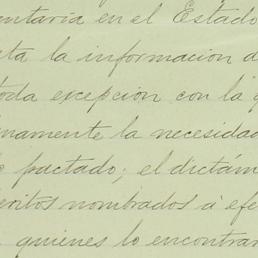 untaria en el Estado
ta la informacion d
toda excepción con la q
namente la necesidad
pactado; el dictám
eritos nombrados á efe
quienes lo encontrar